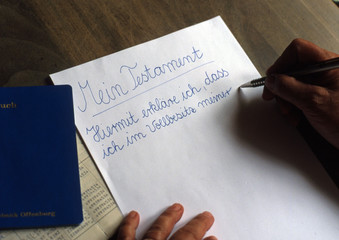 Mein Testament
Hiermit erkläre ich, dass
ich im Vollbesitz meiner
buch
bank Offenburg